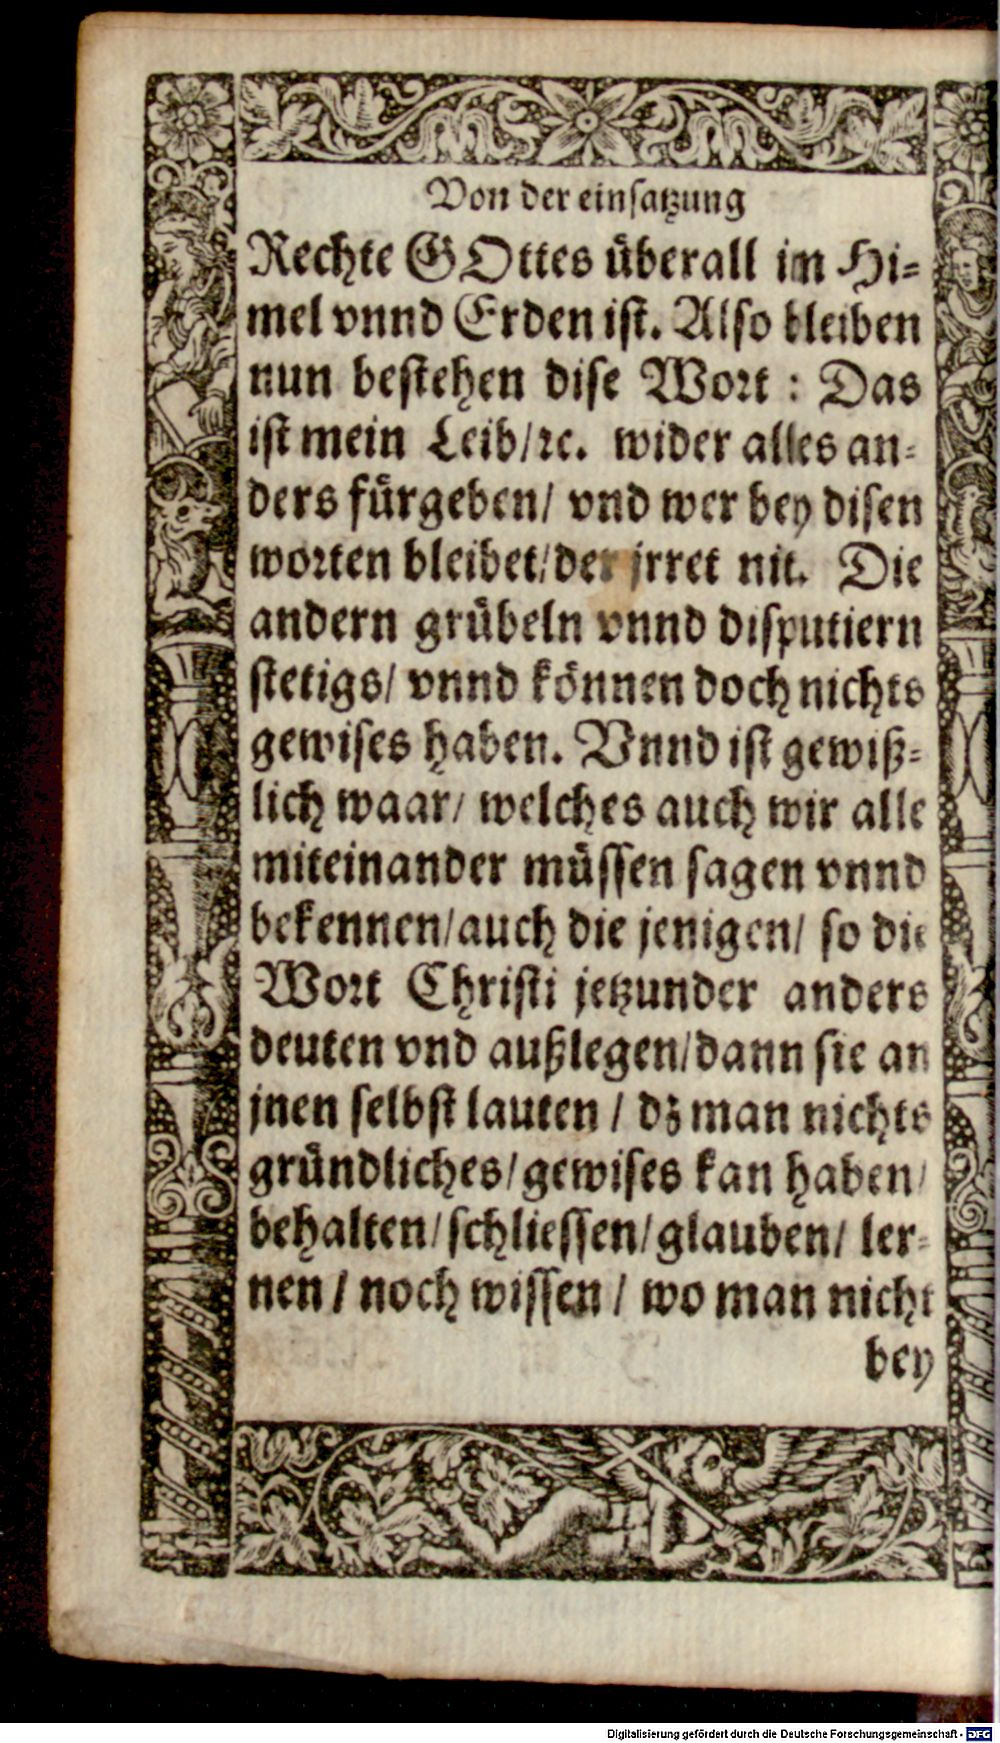 Von der einsatzung
Rechte GOttes überall im Hi-
mel vnnd Erden ist. Also bleiben
nun bestehen dise Wort : Das
ist mein Leib/ꝛc. wider alles an-
ders fürgeben/ vnd wer bey disen
worten bleibet/der jrret nit. Die
andern grübeln vnnd disputiern
stetigs/ vnnd können doch nichts
gewises haben. Vnnd ist gewiß-
lich waar/ welches auch wir alle
miteinander müssen sagen vnnd
bekennen/auch die jenigen/ so die
Wort Christi jetzunder anders
deuten vnd außlegen/dann sie an
jnen selbst lauten / dz man nichts
gründliches/gewises kan haben/
behalten/schliessen/glauben/ ler-
nen / noch wissen / wo man nicht
bey
Digitalisierung gefördert durch die Deutsche Forschungsgemeinschaft - DFG